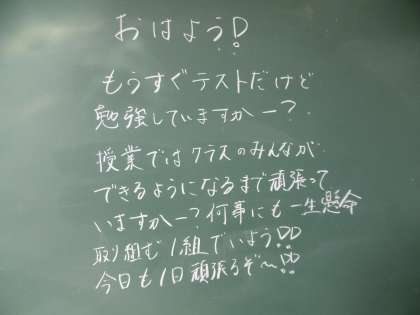 おはよう!!
もうすぐテストだけど
勉強していますかー?
授業ではクラスのみんなが
できるようになるまで頑張って
いますかー?何事にも一生懸命
取り組む1組でいよう!!
今日も1日頑張るぞ〜!!